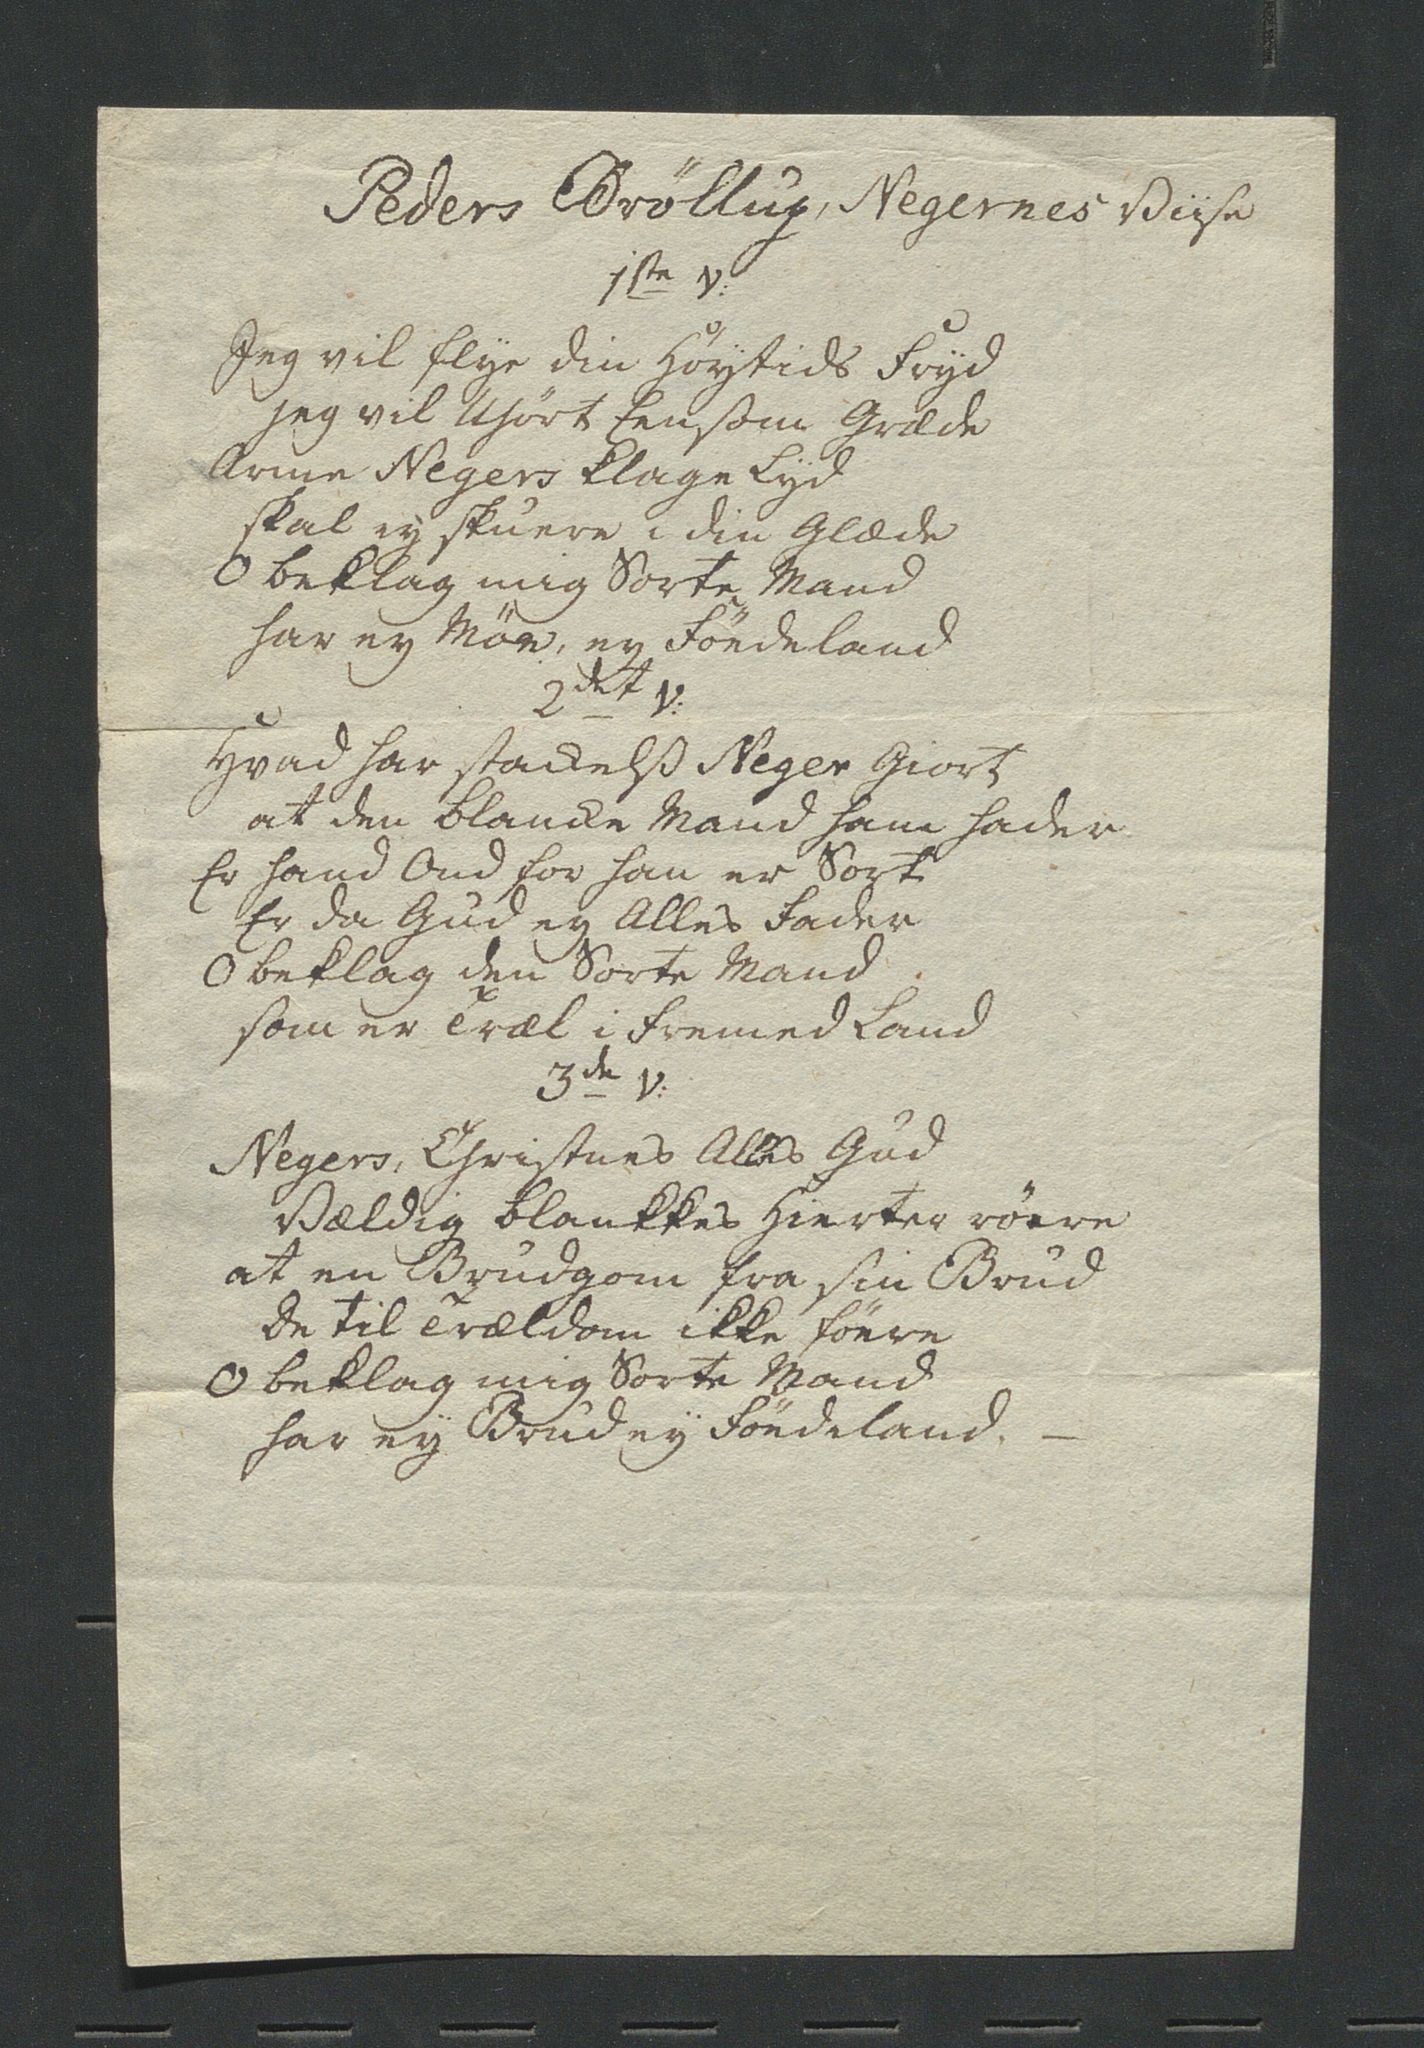 Peders Bröllup, Negernes Viise
1ste V:
Jeg vil flye din Höytids Fryd
jeg vil Uhört Eensom Græde
Arme Negers klage Lyd
skal ey skuere i din Glæde
O beklag mig Sorte Mand
har ey Möe, ey Föedeland
2det V:
Hvad har stackelß Neger Giort
at den blancke Mand ham hader
Er hand Ond for han er Sort
Er da Gud ey Alles Fader
O beklag den Sorte Mand
som er Træl i Fremed Land
3de V:
Negers, Christnes Alles Gud
Vældig blankkes Hierter röere
at en Brudgom fra sin Brud
de til Trældom ikke föere
O beklag mig Sorte Mand
har ey Brud ey Föedeland. —